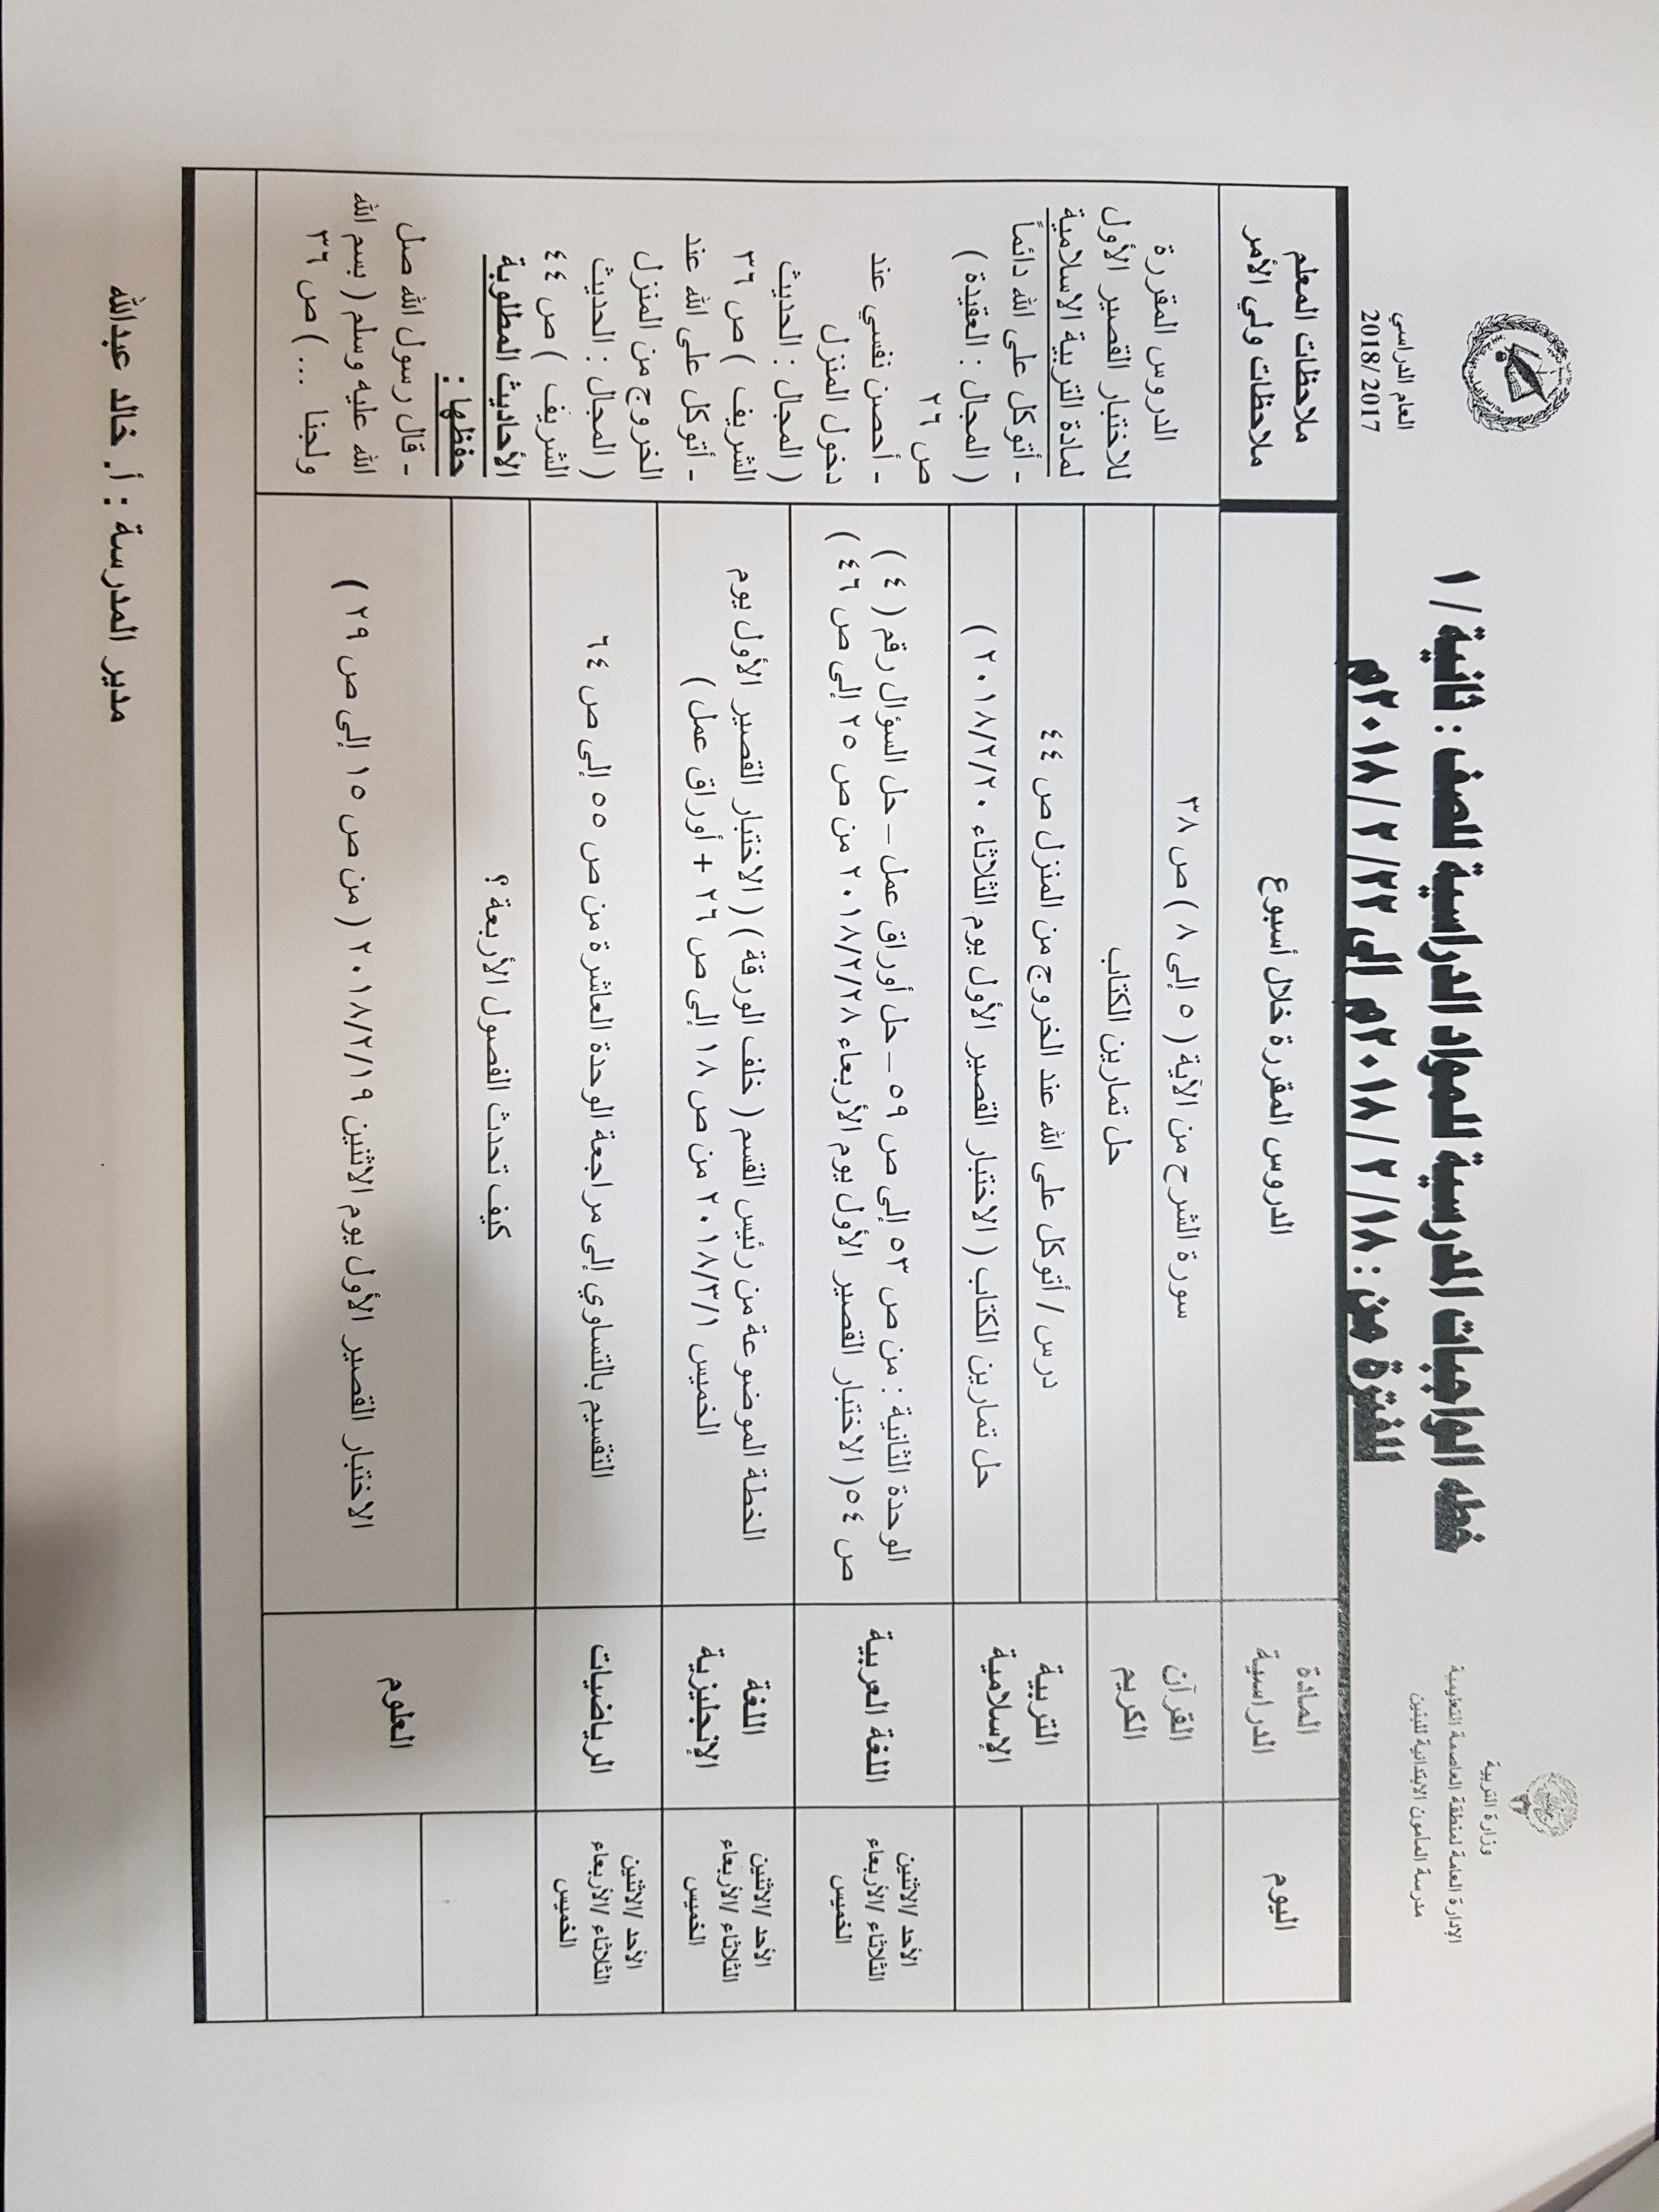 وزارة التربية
الإدارة العامة لمنطقة العاصمة التعليمية
مدرسة المأمون الابتدائية للبنين
خطه الواجبات المدرسية للمواد الدراسية للصف : ثانية / ١
للفترة من : ١٨/ ٢ / ٢٠١٨م إلى ٢٢/ ٢ / ٢٠١٨م
العام الدراسي
2018/ 2017
اليوم
المادة
الدراسية
الدروس المقررة خلال أسبوع
ملاحظات المعلم
ملاحظات ولي الأمر
القرآن
الكريم
سورة الشرح من الآية ( ٥ إلى ٨ ) ص ٣٨
حل تمارين الكتاب
التربية
الإسلامية
درس / أتوكل على الله عند الخروج من المنزل ص ٤٤
حل تمارين الكتاب ( الاختبار القصير الأول يوم الثلاثاء ٢٠١٨/٢/٢٠ )
الأحد /الاثنين
الثلاثاء /الأربعاء
الخميس
اللغة العربية
الوحدة الثانية : من ص ٥٣ إلى ص ٥٩ – حل أوراق عمل – حل السؤال رقم ( ٤ )
ص ٥٤ ( الاختبار القصير الأول يوم الأربعاء ٢٠١٨/٢/٢٨ من ص ٢٥ إلى ص ٤٦ )
الأحد /الاثنين
الثلاثاء /الأربعاء
الخميس
اللغة
الإنجليزية
الخطة الموضوعة من رئيس القسم ( خلف الورقة ) ( الاختبار القصير الأول يوم
الخميس ٢٠١٨/٣/١ من ص ١٨ إلى ص ٢٦ + أوراق عمل )
الأحد /الاثنين
الثلاثاء /الأربعاء
الخميس
الرياضيات
التقسيم بالتساوي إلى مراجعة الوحدة العاشرة من ص ٥٥ إلى ص ٦٤
العلوم
كيف تحدث الفصول الأربعة ؟
الاختبار القصير الأول يوم الاثنين ٢٠١٨/٢/١٩ ( من ص ١٥ إلى ص ٢٩ )
الدروس المقررة
للاختبار القصير الأول
لمادة التربية الاسلامية
- أتوكل على الله دائماً
( المجال : العقيدة )
ص ٢٦
- أحصن نفسي عند
دخول المنزل
( المجال : الحديث
الشريف ) ص ٣٦
- أتوكل على الله عند
الخروج من المنزل
( المجال : الحديث
الشريف ) ص ٤٤
الأحاديث المطلوبة
حفظها :
- قال رسول الله صل
الله عليه وسلم ( بسم الله
ولجنا ... ) ص ٣٦
مدير المدرسة : أ. خالد عبدالله